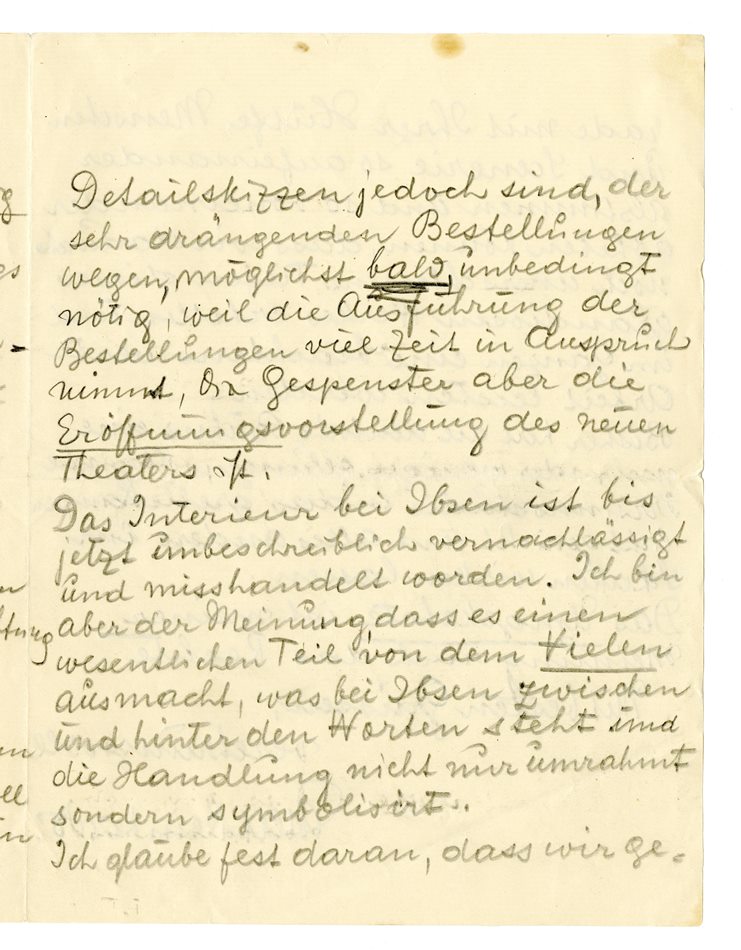 Detailskizzen jedoch sind, der
sehr drängenden Bestellungen
wegen, möglichst bald, unbedingt
nötig, weil die Ausführung der
Bestellungen viel Zeit in Anspruch
nimmt, die Gespenster aber die
Eröffnungsvorstellung des neuen
Theaters ist.
Das Interieur bei Ibsen ist bis
jetzt unbeschreiblich vernachlässigt
und misshandelt worden. Ich bin
aber der Meinung, dass es einen
wesentlichen Teil von dem Vielen
ausmacht, was bei Ibsen zwischen
und hinter den Worten steht und
die Handlung nicht nur umrahmt
sondern symbolisirt.
Ich glaube fest daran, dass wir ge-